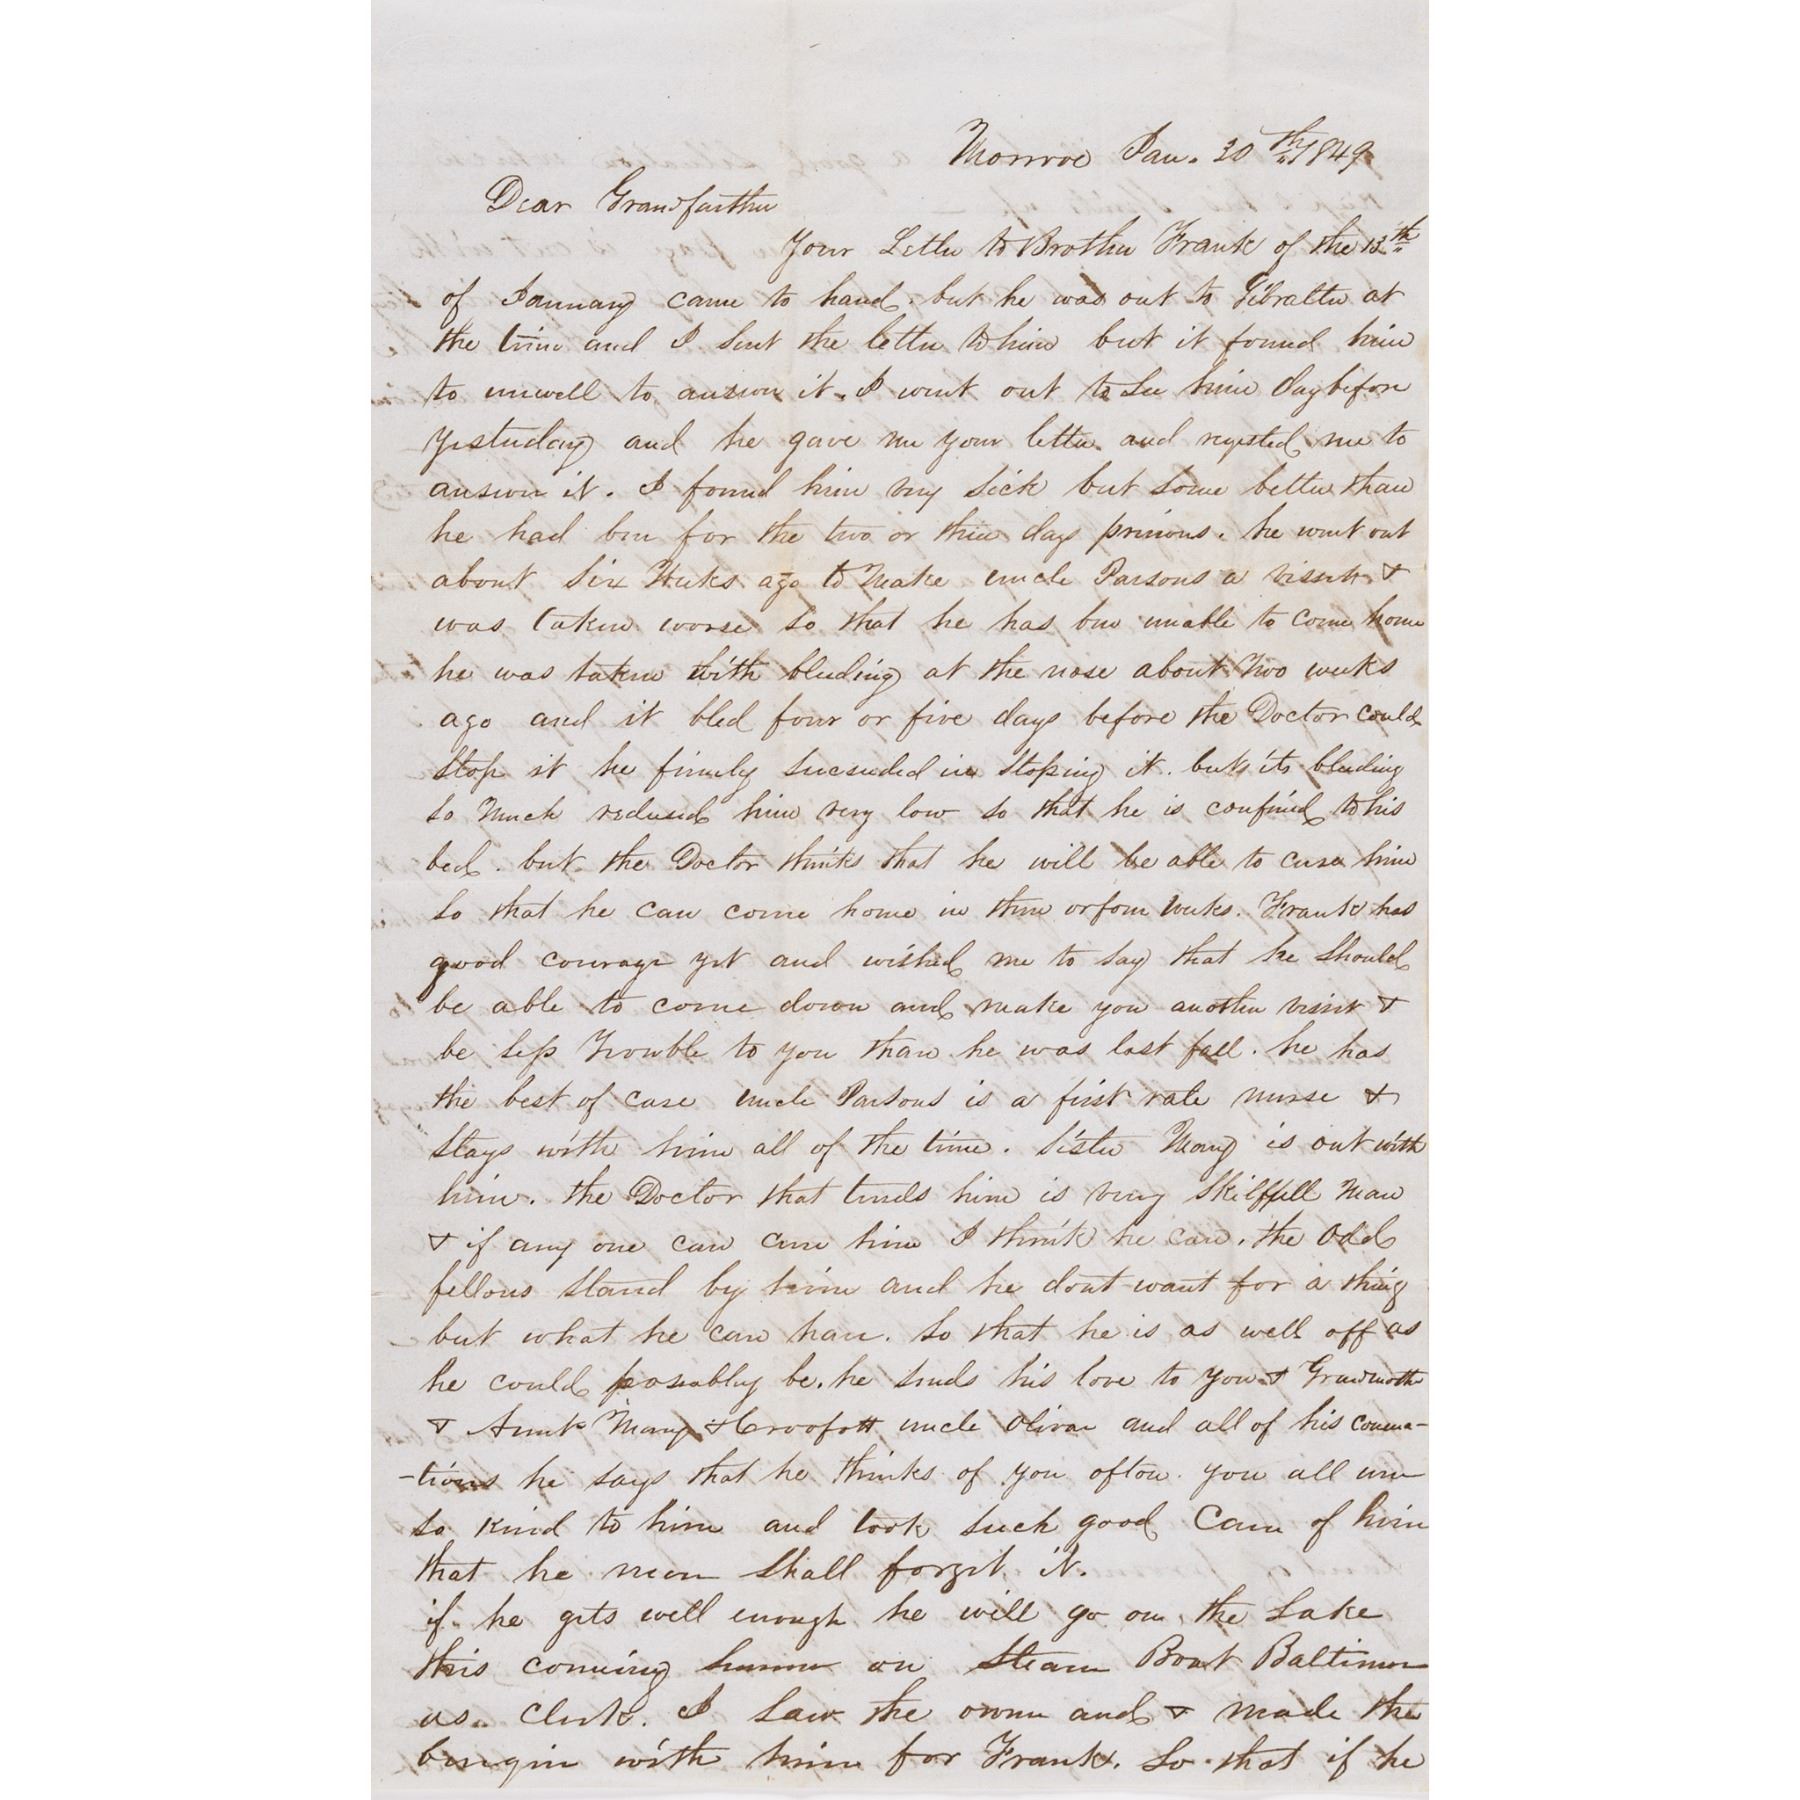 Monroe Jan. 30th 1849
Dear Grandfarther
Your Letter to Brother Frank of the 13th
of January came to hand. but he was out to Gibralter at
the time and I sent the letter to him but it found him
to unwell to answer it. I went out to See him day before
yesterday and he gave me your letter and reqested me to
answer it. I found him very Sick but Some better than
he had ben for the two or three days previous. he went out
about Six Weeks ago to Make uncle Parsons a vissit &
was taken worse So that he has ben unable to come home
he was taken with bleeding at the nose about Two weeks
ago and it bled four or five days before the Doctor could
Stop it he finely Sucseeded in Stoping it. but its bleeding
So Much redused him very low So that he is confined to his
bed. but the Doctor thinks that he will be able to cure him
So that he can come home in three or four Weeks. Frank has
good courage yet and wished me to Say that he Should
be able to come down and make you another vissit &
be less Trouble to you than he was last fall. he has
the best of care uncle Parsons is a first rate nurse &
Stays with him all of the time. Sister Mary is out with
him. the Doctor that tends him is very Skilffull Man
& if any one can cure him I think he can. the Odd
fellows Stand by him and he dont want for a thing
but what he can have. So that he is as well off as
he could possably be. he Sends his love to you & Grandmother
& Aunt Mary & uncle Oliver and all of his
he Says that he thinks of you often. you all were
So Kind to him and took Such good Care of him
that he never Shall forget it.
if he gets well enough he will go on the Lake
this coming Summer on Steam Boat Baltimore
as Clerk. I Saw the owner and & made the
bargin with him for Frank. So that if he